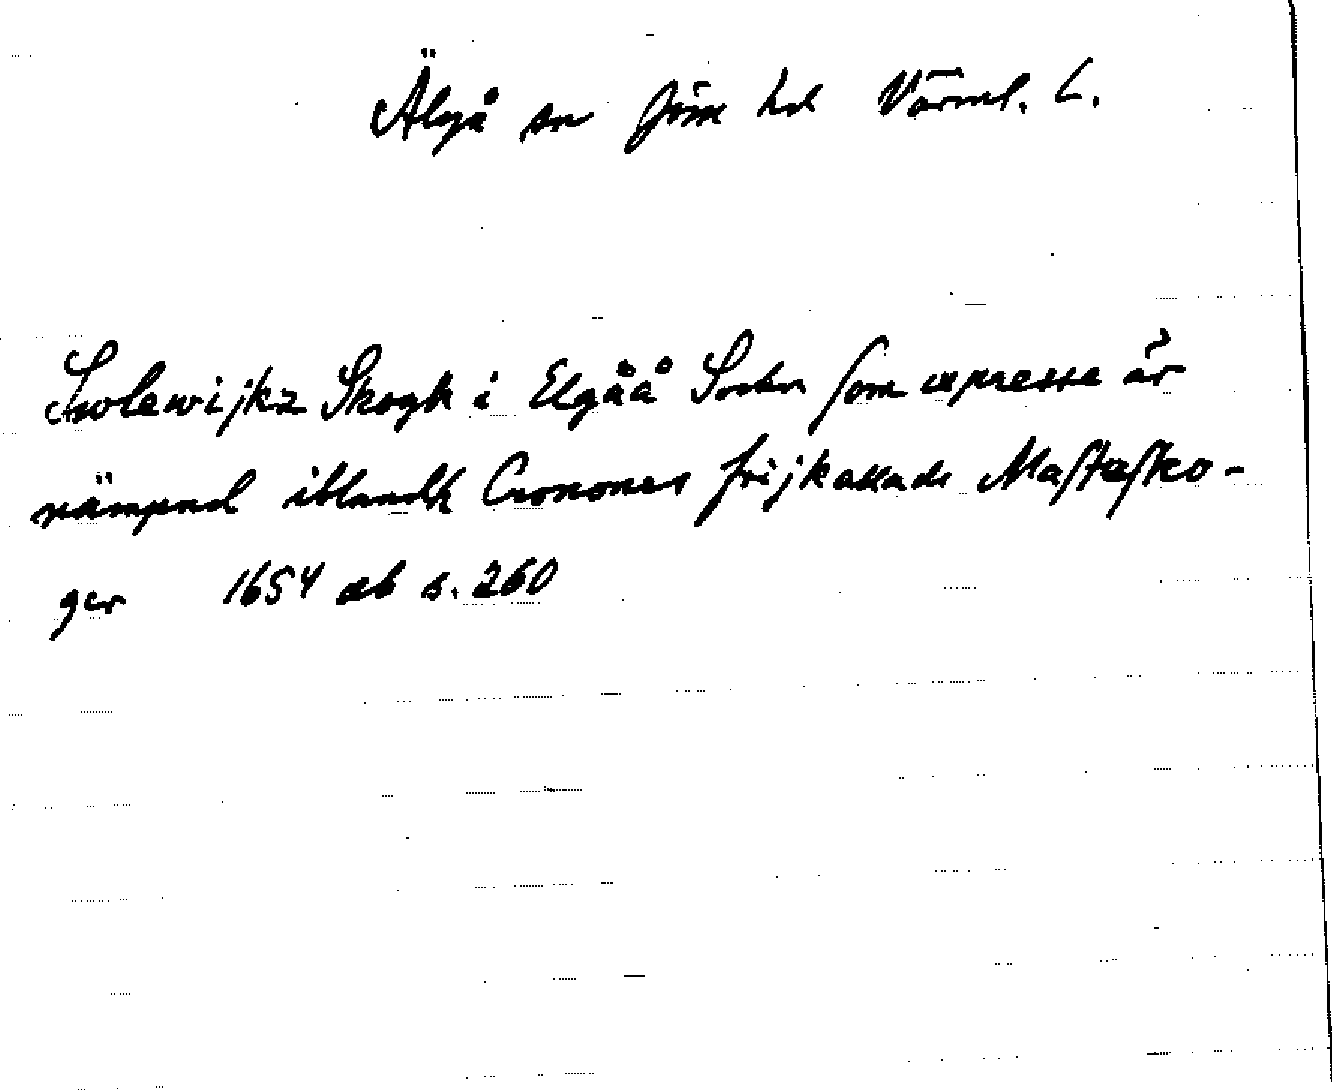 Älgå sn Jösse hd Värml. L.
Swolewijkz Skogh i Elgåå Sockn som expresse är
nämpnd iblandh Cronones frijkallade Mastesko-
ger 1654 ab s. 260